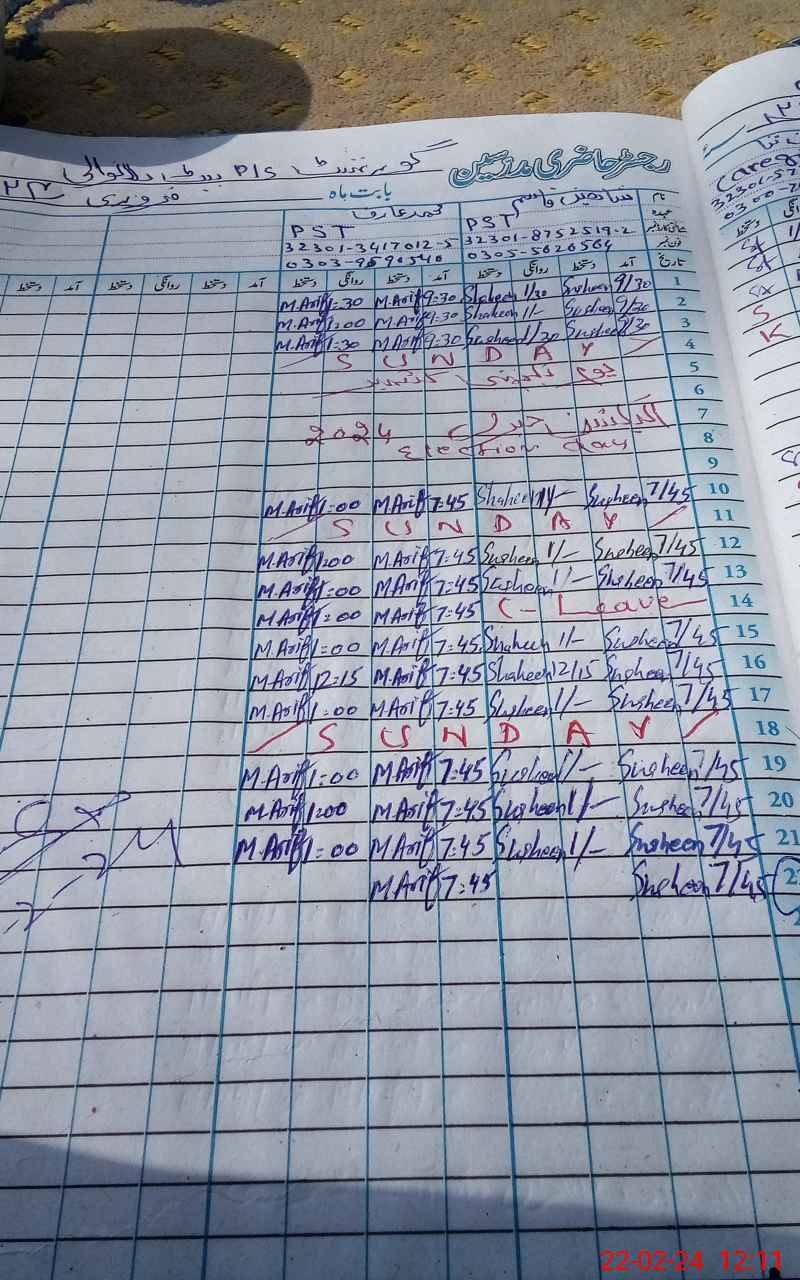 رجسٹر حاضری مدرسین
گورنمنٹ P/S
بابت ماہ فروری
نام شاہین قاسم محمد عارف
عہدہ PST PST
32301-8752519-2 32301-3417012-5
فون نمبر 0305-5626564 0303-9590540
تاریخ آمد دستخط روانگی دستخط آمد دستخط روانگی دستخط آمد دستخط روانگی دستخط آمد دستخط
1 9/30 Shaheen 1/30 Shaheen 9:30 M.Arif 1:30 M.Arif
2 9/30 Shaheen 1/- Shaheen 9:30 M.Arif 1:00 M.Arif
3 9/30 Shaheen 1/30 Shaheen 9:30 M.Arif 1:30 M.Arif
4 S U N D A Y
5
6
7 الیکشن 2024
8 election day
9
10 7/45 Shaheen 1/- Shaheen 7:45 M.Arif 1:00 M.Arif
11 S U N D A Y
12 7/45 Shaheen 1/- Shaheen 7:45 M.Arif 1:00 M.Arif
13 7/45 Shaheen 1/- Shaheen 7:45 M.Arif 1:00 M.Arif
14 C- Leave 7:45 M.Arif 1:00 M.Arif
15 7/45 Shaheen 1/- Shaheen 7:45 M.Arif 1:00 M.Arif
16 7/45 Shaheen 12/15 Shaheen 7:45 M.Arif 12:15 M.Arif
17 7/45 Shaheen 1/- Shaheen 7:45 M.Arif 1:00 M.Arif
18 S U N D A Y
19 7/45 Shaheen 1/- Shaheen 7:45 M.Arif 1:00 M.Arif
20 7/45 Shaheen 1/- Shaheen 7:45 M.Arif 1:00 M.Arif
21 7/45 Shaheen 1/- Shaheen 7:45 M.Arif 1:00 M.Arif
7/45 Shaheen 7:45 M.Arif
22-02-24 12:11